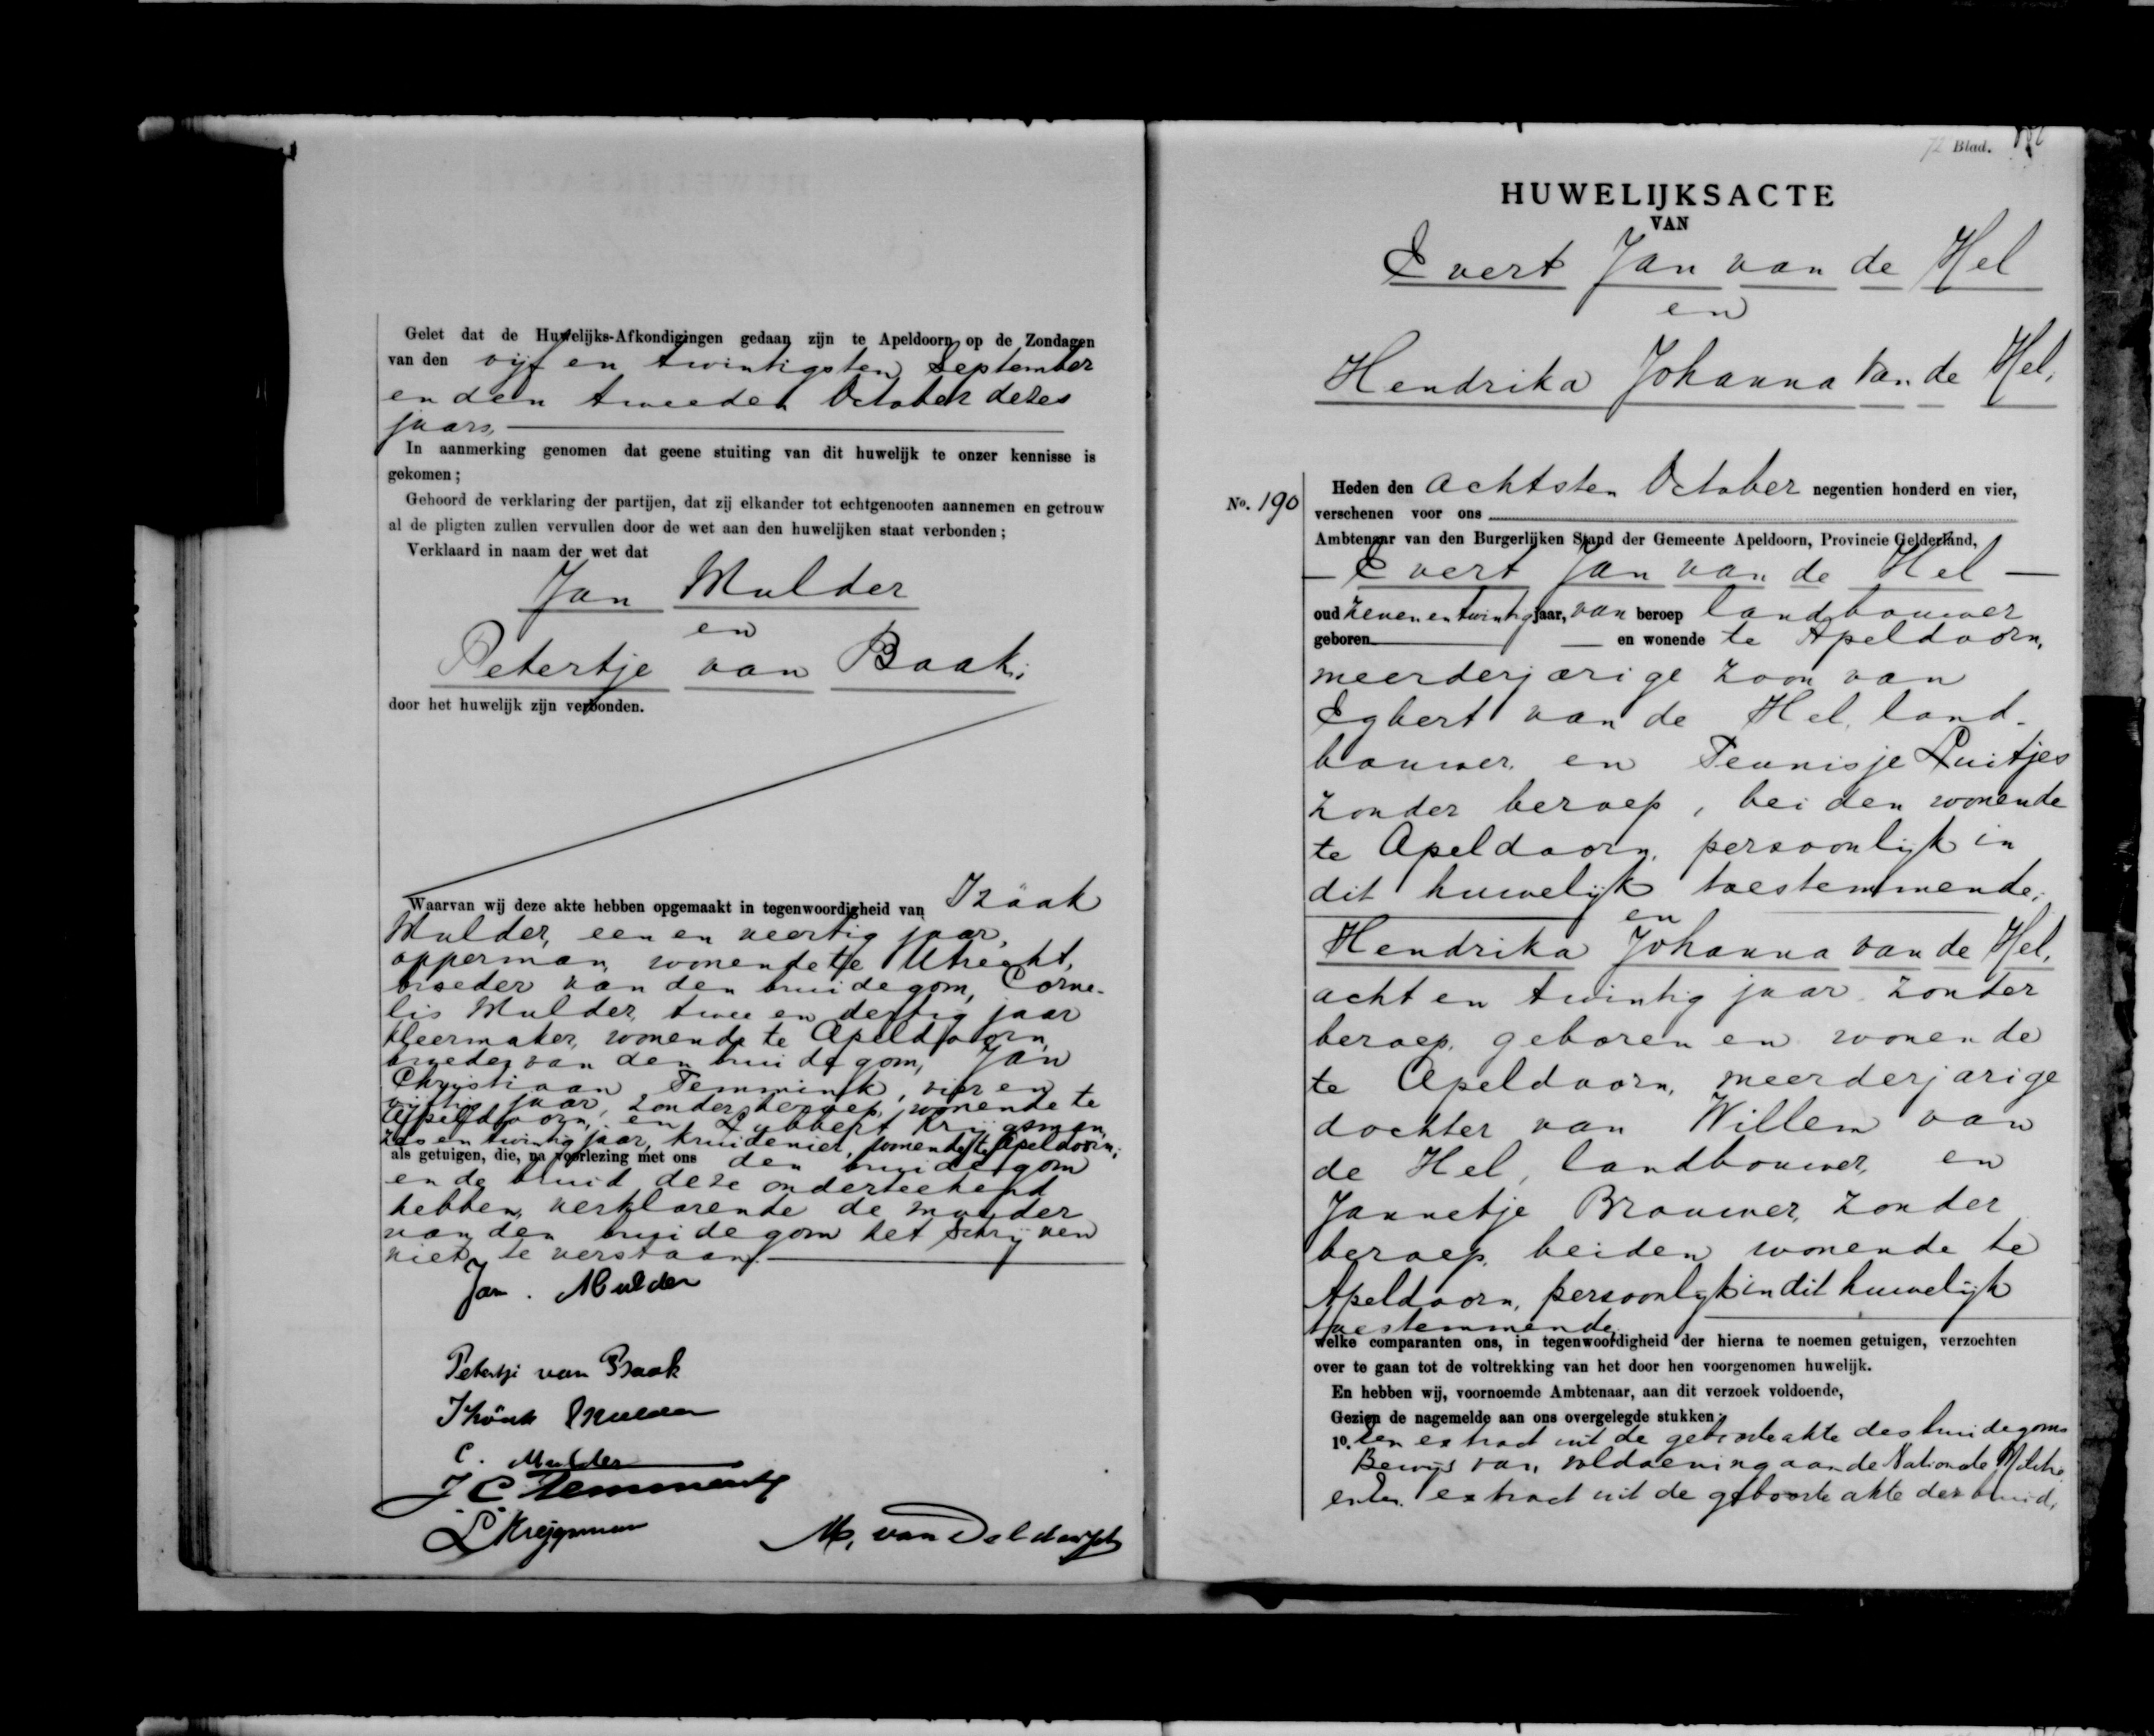 Gelet dat de Huwelijks-Afkondigingen gedaan zijn te Apeldoorn op de Zondagen
van den vijf en twintigsten September
en den tweeden October dezes
jaars,
In aanmerking genomen dat geene stuiting van dit huwelijk te onzer kennisse is
gekomen;
Gehoord de verklaring der partijen, dat zij elkander tot echtgenooten aannemen en getrouw
al de pligten zullen vervullen door de wet aan den huwelijken staat verbonden;
Verklaard in naam der wet dat
Jan Mulder
en
Petertje van Baak;
door het huwelijk zijn verbonden.
Waarvan wij deze akte hebben opgemaakt in tegenwoordigheid van Izäak
Mulder, een en veertig jaar,
opperman, wonende te Utrecht,
broeder van den bruidegom, Corne-
lis Mulder, twee en dertig jaar
kleermaker, wonende te Apeldoorn,
broeder van den bruidegom, Jan
Christiaan Temmink, vier en
vijftig jaar, zonder beroep, wonende te
Apeldoorn, en Lubbert Krijgsman,
zes en twintig jaar, kruidenier, wonende te Apeldoorn;
als getuigen, die, na voorlezing met ons den bruidegom
en de bruid deze onderteekend
hebben, verklarende de moeder
van den bruidegom het schrijven
niet te verstaan.
Jan. Mulder
Petertje van Baak
Izäak Mulder
C. Mulder
J C Temmink
L Krijgsman
M. van
72 Blad.
HUWELIJKSACTE
VAN
Evert Jan van de Hel
en
Hendrika Johanna van de Hel,
No. 190
Heden den achtsten October negentien honderd en vier,
verschenen voor ons
Ambtenaar van den Burgerlijken Stand der Gemeente Apeldoorn, Provincie Gelderland,
Evert Jan van de Hel
oud zeven en twintig jaar, van beroep landbouwer
geboren en wonende te Apeldoorn,
meerderjarige zoon van
Egbert van de Hel, land-
bouwer en Teunisje Luitjes
zonder beroep, beiden wonende
te Apeldoorn, persoonlijk in
dit huwelijk toestemmende;
en
Hendrika Johanna van de Hel,
acht en twintig jaar zonder
beroep, geboren en wonende
te Apeldoorn, meerderjarige
dochter van Willem van
de Hel, landbouwer, en
Jannetje Brouwer, zonder
beroep, beiden wonende te
Apeldoorn, persoonlijk in dit huwelijk
toestemmende,
welke comparanten ons, in tegenwoordigheid der hierna te noemen getuigen, verzochten
over te gaan tot de voltrekking van het door hen voorgenomen huwelijk.
En hebben wij, voornoemde Ambtenaar, aan dit verzoek voldoende,
Gezien de nagemelde aan ons overgelegde stukken:
1o. Een extract uit de geboorteakte des bruidegoms
Bewijs van voldoening aan de Nationale Militie
en een extract uit de geboorte akte der bruid,